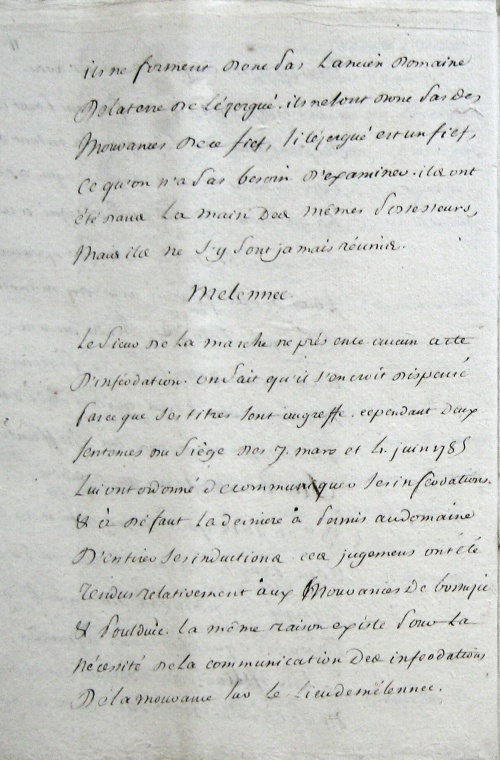 ils ne forment donc pas l'ancien domaine
de la terre de lézergué. ils ne sont donc pas des
mouvances de ce fief, si lézergué est un fief,
ce qu'on n'a pas besoin d'examiner. ils ont
été dans la main des mêmes possesseurs,
mais ils ne s'y sont jamais réunis.
Melennec
Le sieur de la marche ne présente aucun acte
d'inféodation. on sait qu'il s'en croit dispensé
parce que ses titres sont au greffe. cependant deux
sentences du siège des 7. mars et 4. juin 1785
lui ont ordonné de communiquer ses inféodations.
& à défaut la derniere a permis au domaine
d'entirer ses inductions. ces jugemens ont été
rendus relativement aux mouvances de
& poulduic. la même raison existe pour la
nécessité de la communication des inféodations
de la mouvance sur le lieu de mélennec.